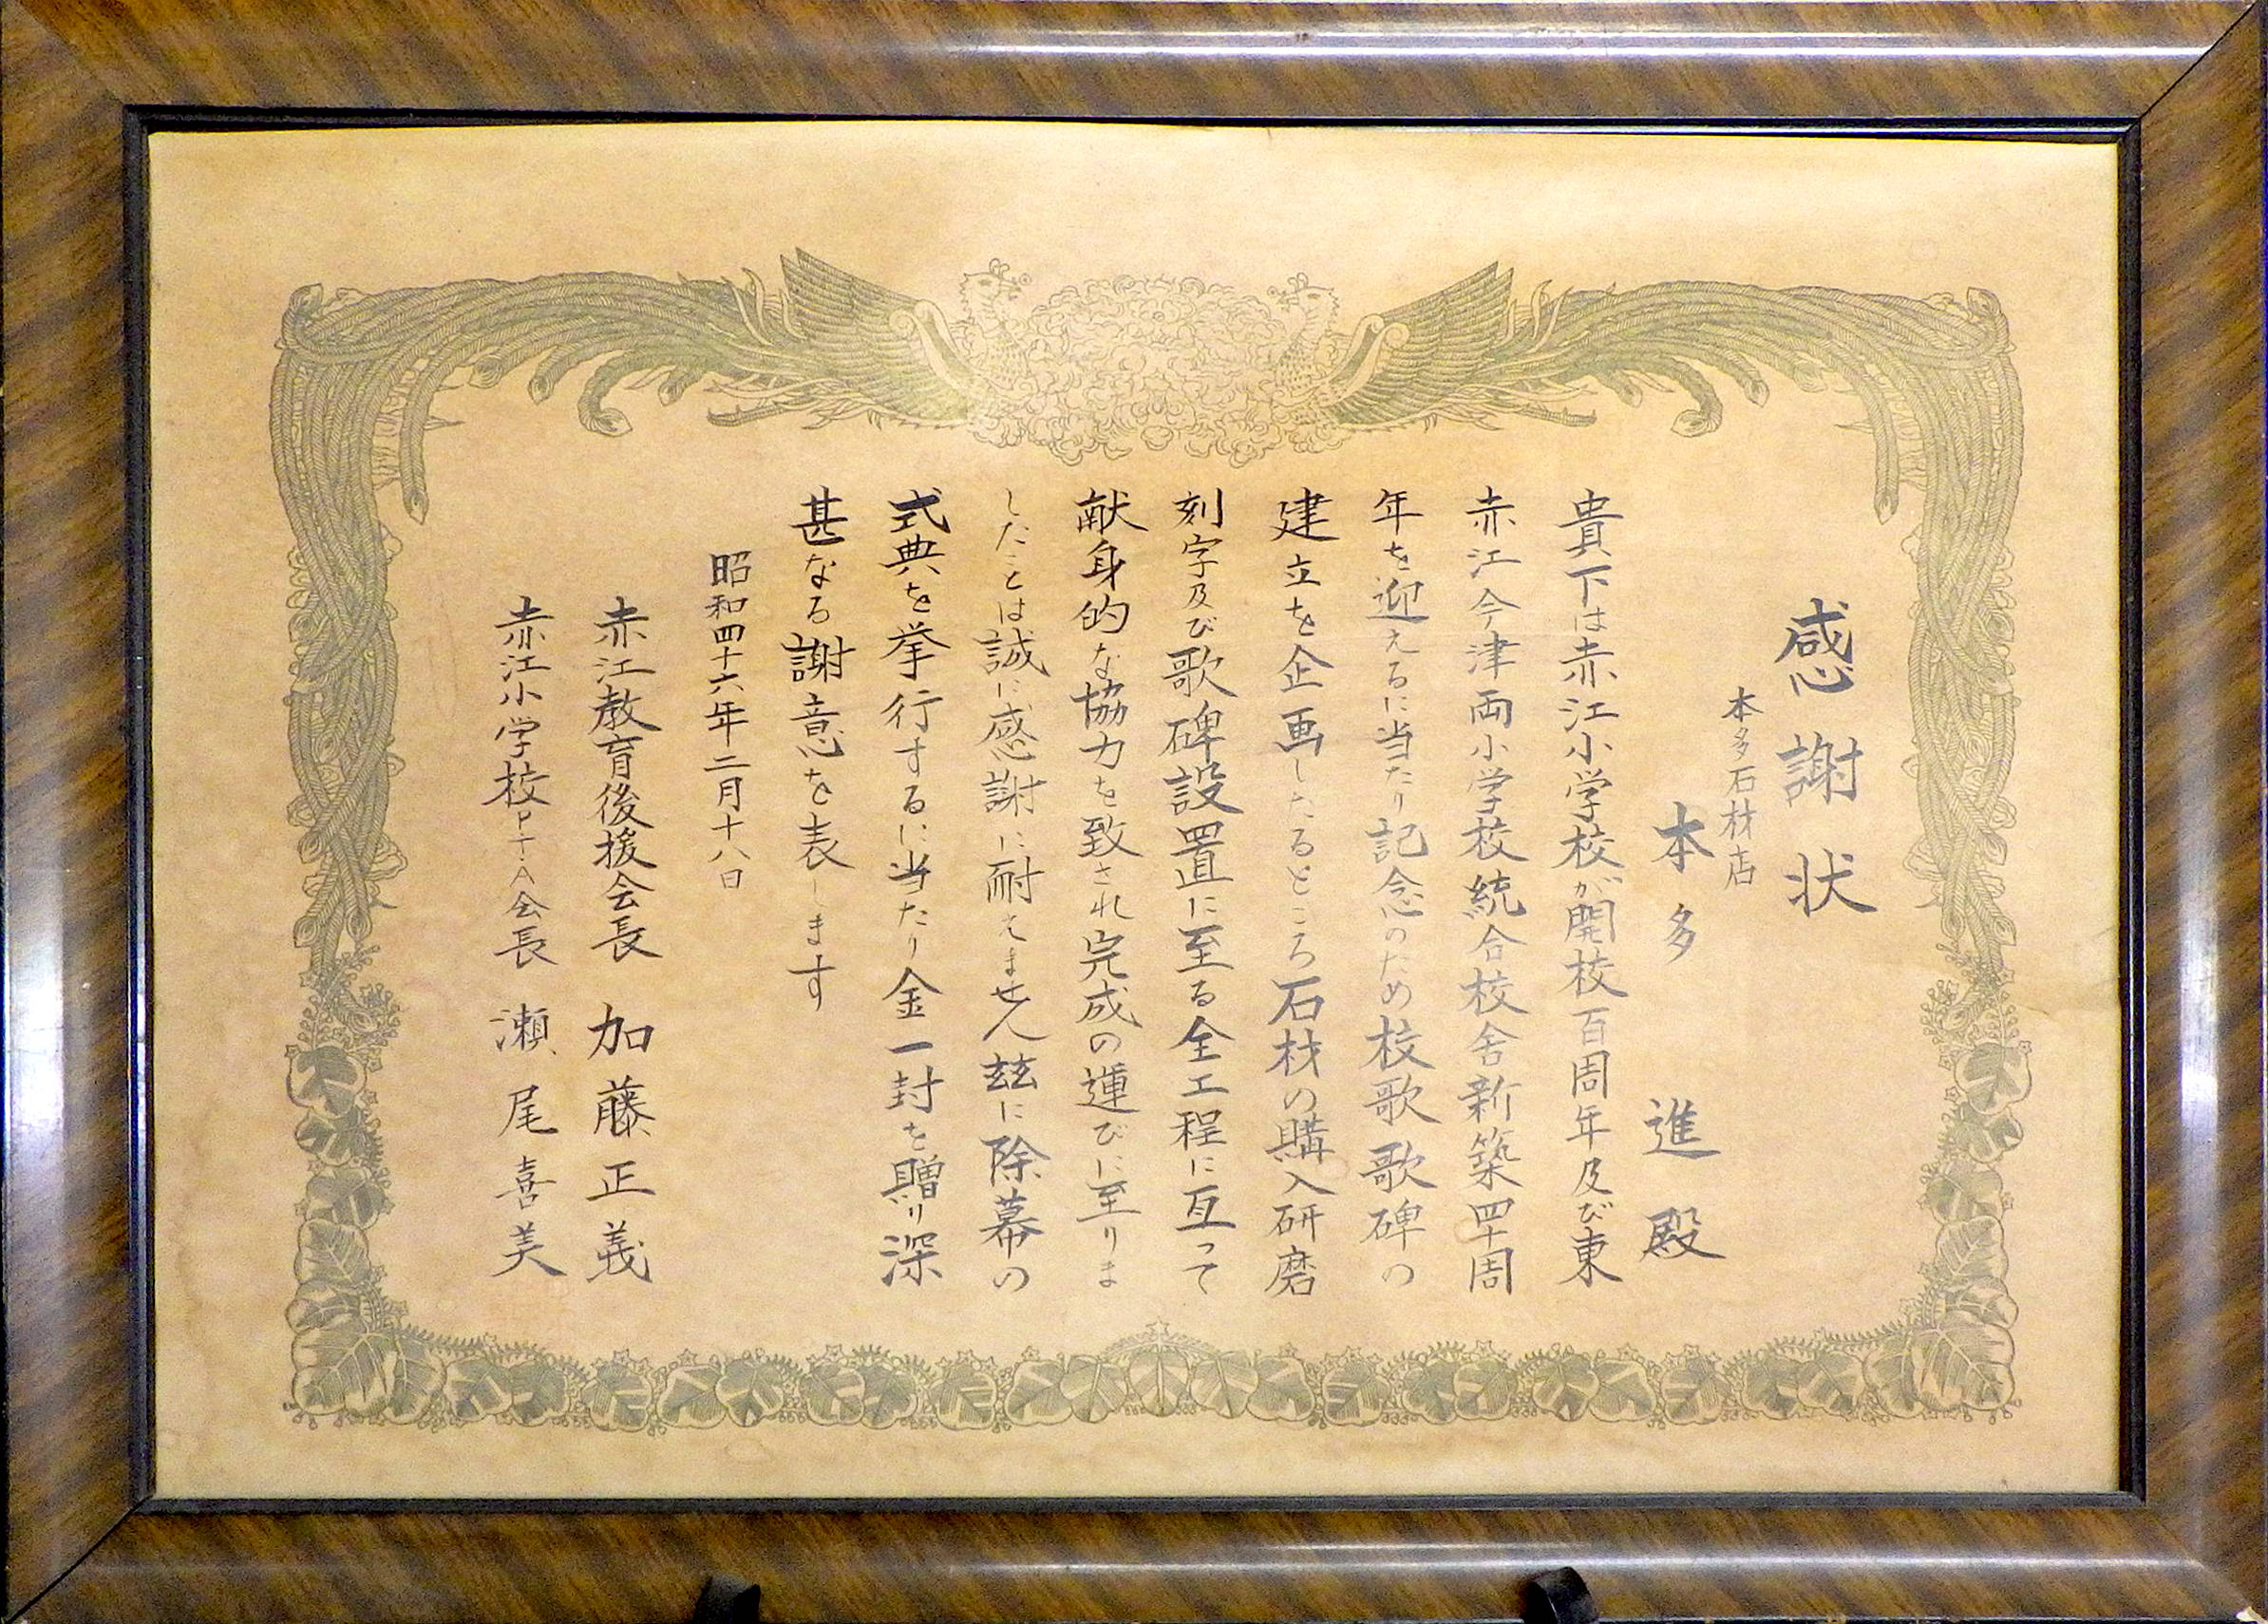 感謝状
本多石材店
本多　進殿
貴下は赤江小学校が開校百周年及び東
赤江今津両小学校統合校舎新築四十周
年を迎えるに当たり記念のため校歌歌碑の
建立を企画したるところ石材の購入研磨
刻字及び歌碑設置に至る全工程に亙って
献身的な協力を致され完成の運びに至りま
したことは誠に感謝に耐えません玆に除幕の
式典を挙行するに当たり金一封を贈り深
甚なる謝意を表します
昭和四十六年二月十八日
赤江教育後援会長　加藤正義
赤江小学校P・T・A会長　瀬尾喜美